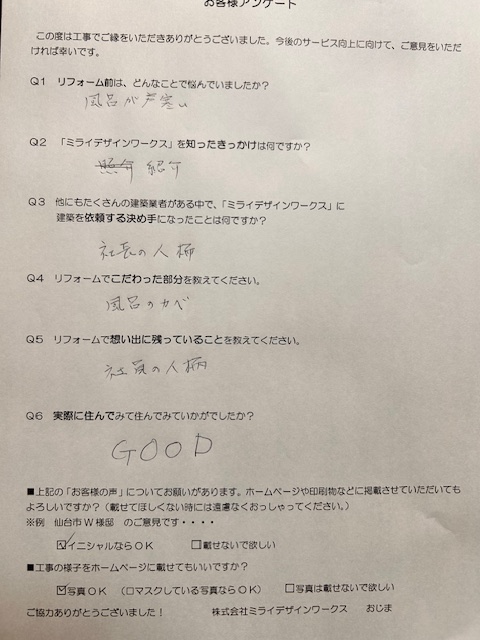 お客様アンケート
この度は工事でご縁をいただきありがとうございました。今後のサービス向上に向けて、ご意見をいただ
ければ幸いです。
Q1 リフォーム前は、どんなことで悩んでいましたか?
風呂が寒い
Q2 「ミライデザインワークス」を知ったきっかけは何ですか?
紹介
Q3 他にもたくさんの建築業者がある中で、「ミライデザインワークス」に
建築を依頼する決め手になったことは何ですか?
社長の人柄
Q4 リフォームでこだわった部分を教えてください。
風呂のカベ
Q5 リフォームで想い出に残っていることを教えてください。
社員の人柄
Q6 実際に住んでみて住んでみていかがでしたか?
GOOD
■上記の「お客様の声」についてお願いがあります。ホームページや印刷物などに掲載させていただいても
よろしいですか?(載せてほしくない時には遠慮なくおっしゃってください。)
※例 仙台市W様邸 のご意見です・・・・
☑イニシャルならOK □載せないで欲しい
■工事の様子をホームページに載せてもいいですか?
☑写真OK (□マスクしている写真ならOK) □写真は載せないで欲しい
ご協力ありがとうございました! 株式会社ミライデザインワークス おじま